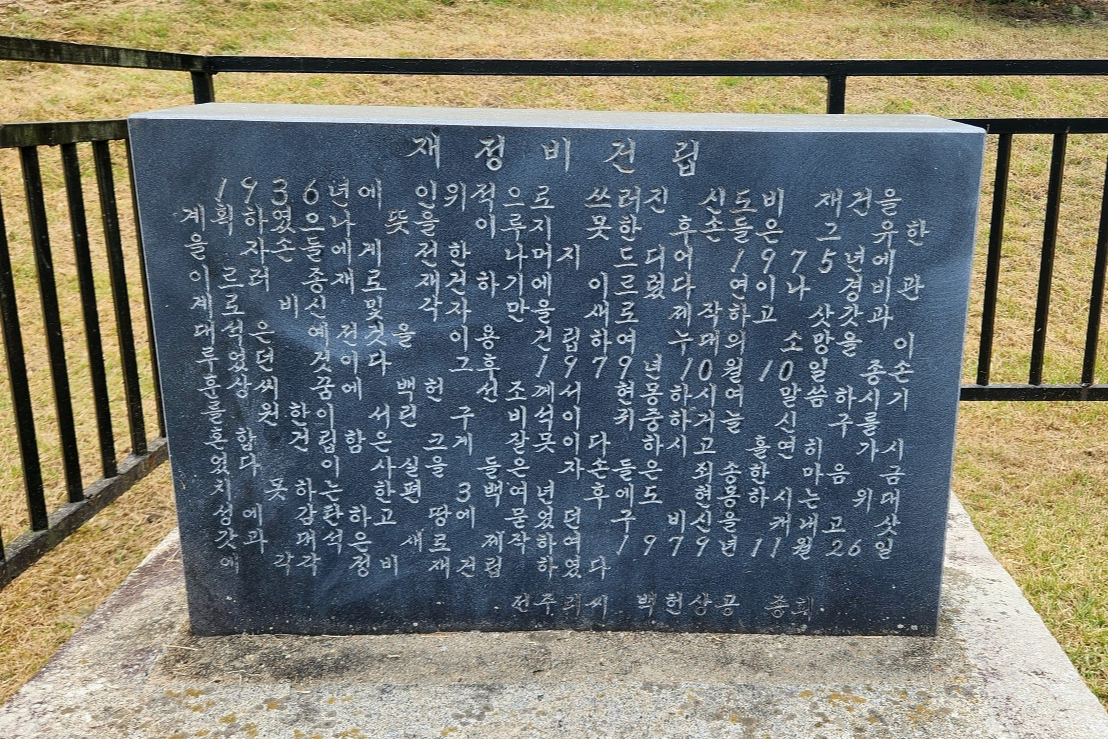 재정비건립
1936년에 인위적으로 쓰러진 신도비 재건을
계획하였으나 뜻을 이루지 못한 후손들은 그 유한
을 자손들에게 전한 나머지 드디어 1975년에
이르러 종재로 재건하기에 이르렀다 연이나 경비관
계로 비신 및 각자만을 새로 제작하고 삿갓과
대석은 예전것을 이용 건립하여 누대의 소망을 이
루었던 것이다 그후 1979년 10월 10일 종손
훈상씨 꿈에 백헌 선조께서 현몽하시여 말씀하시기
를 원한이 서린 구비석이 하거늘 신구를
혼합 건립함은 그게 잘못이다 하시고 홀연히 가시
었다 이 사실을 들은 자손들은 죄송한 마음 금
치 못하는 한편 3백여년 후에도 현용하시는 위대
성에 감탄하고 땅에 묻었던 구비신을 캐내고 삿
갓과 대석은 새로 제작하여 1979년 11월 26일
에 각각 정비 재건립하였다
전주리씨 백헌상공 종회